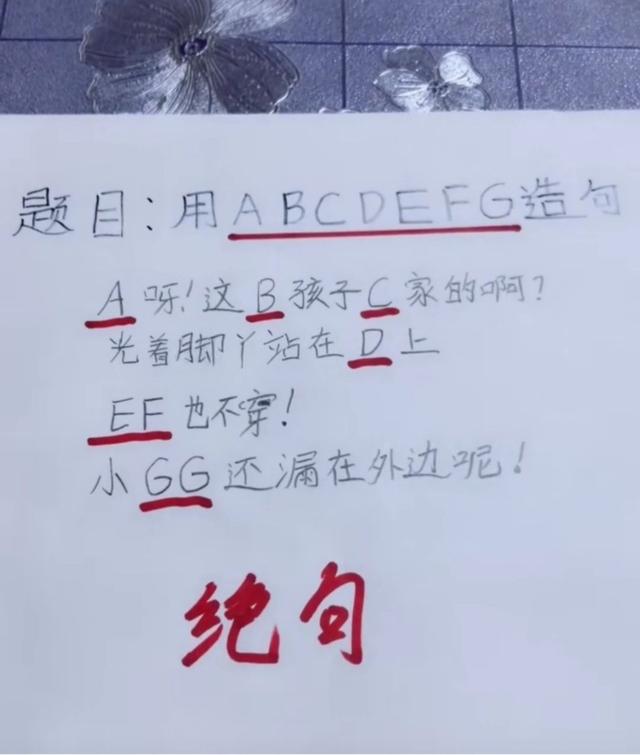 题目：用ABCDEFG造句
A呀！这B孩子C家的啊？
光着脚丫站在D上
EF也不穿！
小GG还漏在外边呢！
绝句